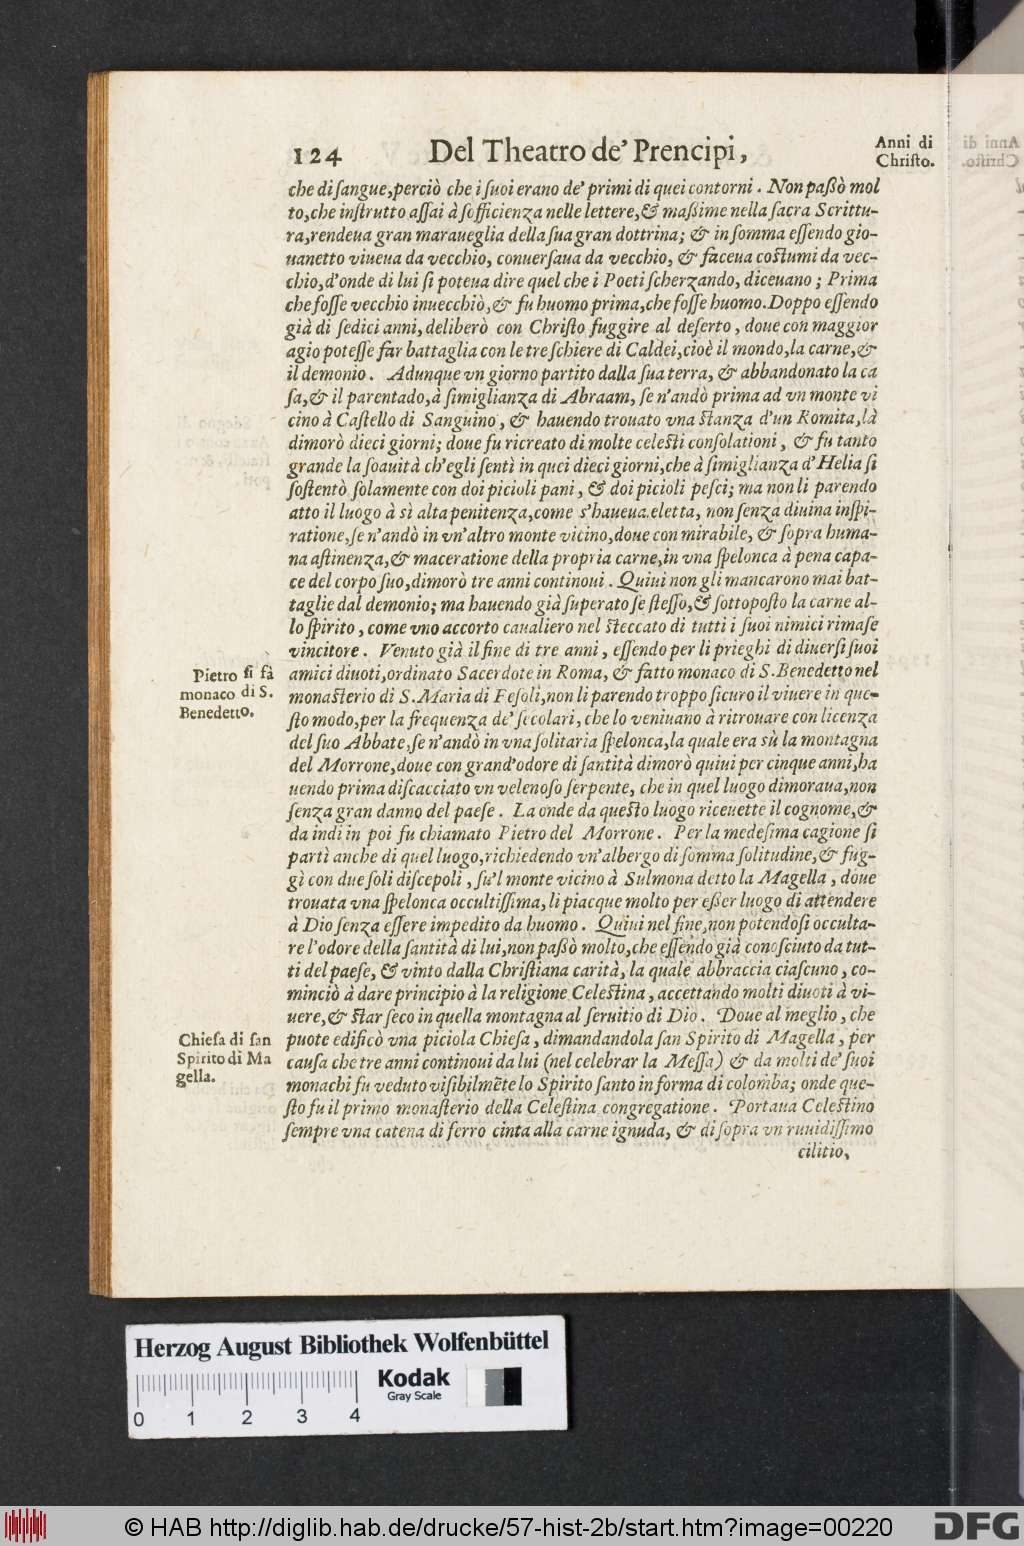 124 Del Theatro de' Prencipi,
Anni di
Christo.
che di sangue, perciò che i suoi erano de' primi di quei contorni. Non paßò mol
to, che instrutto assai à sofficienza nelle lettere, & maßime nella sacra Scrittu-
ra, rendeua gran maraueglia della sua gran dottrina; & in somma essendo gio-
uanetto viueua da vecchio, conuersaua da vecchio, & faceua costumi da vec-
chio, d'onde di lui si poteua dire quel che i Poeti scherzando, diceuano; Prima
che fosse vecchio inuecchiò, & fu huomo prima, che fosse huomo. Doppo essendo
già di sedici anni, deliberò con Christo fuggire al deserto, doue con maggior
agio potesse far battaglia con le tre schiere di Caldei, cioè il mondo, la carne, &
il demonio. Adunque vn giorno partito dalla sua terra, & abbandonato la ca
sa, & il parentado, à simiglianza di Abraam, se n'andò prima ad vn monte vi
cino à Castello di Sanguino, & hauendo trouato vna stanza d'un Romita, là
dimorò dieci giorni; doue fu ricreato di molte celesti consolationi, & fu tanto
grande la soauità ch'egli sentì in quei dieci giorni, che à simiglianza d'Helia si
sostentò solamente con doi picioli pani, & doi picioli pesci; ma non li parendo
atto il luogo à sì alta penitenza, come s'haueua eletta, non senza diuina inspi-
ratione, se n'andò in vn'altro monte vicino, doue con mirabile, & sopra huma-
na astinenza, & maceratione della propria carne, in vna spelonca à pena capa-
ce del corpo suo, dimorò tre anni continoui. Quiui non gli mancarono mai bat-
taglie dal demonio; ma hauendo già superato se stesso, & sottoposto la carne al-
lo spirito, come vno accorto caualiero nel steccato di tutti i suoi nimici rimase
vincitore. Venuto già il fine di tre anni, essendo per li prieghi di diuersi suoi
Pietro si fà
monaco di S.
Benedetto.
amici diuoti, ordinato Sacerdote in Roma, & fatto monaco di S. Benedetto nel
monasterio di S. Maria di Fesoli, non li parendo troppo sicuro il viuere in que-
sto modo, per la frequenza de' secolari, che lo veniuano à ritrouare con licenza
del suo Abbate, se n'andò in vna solitaria spelonca, la quale era sù la montagna
del Morrone, doue con grand'odore di santità dimorò quiui per cinque anni, ha
uendo prima discacciato vn velenoso serpente, che in quel luogo dimoraua, non
senza gran danno del paese. La onde da questo luogo riceuette il cognome, &
da indi in poi fu chiamato Pietro del Morrone. Per la medesima cagione si
partì anche di quel luogo, richiedendo vn'albergo di somma solitudine, & fug-
gì con due soli discepoli, su'l monte vicino à Sulmona detto la Magella, doue
trouata vna spelonca occultissima, li piacque molto per eßer luogo di attendere
à Dio senza essere impedito da huomo. Quiui nel fine, non potendosi occulta-
re l'odore della santità di lui, non paßò molto, che essendo già conosciuto da tut-
ti del paese, & vinto dalla Christiana carità, la quale abbraccia ciascuno, co-
minciò à dare principio à la religione Celestina, accettando molti diuoti à vi-
uere, & star seco in quella montagna al seruitio di Dio. Doue al meglio, che
Chiesa di san
Spirito di Ma
gella.
puote edificò vna piciola Chiesa, dimandandola san Spirito di Magella, per
causa che tre anni continoui da lui (nel celebrar la Messa) & da molti de' suoi
monachi fu veduto visibilmẽte lo Spirito santo in forma di colomba; onde que-
sto fu il primo monasterio della Celestina congregatione. Portaua Celestino
sempre vna catena di ferro cinta alla carne ignuda, & di sopra vn ruuidissimo
cilitio,
Herzog August Bibliothek Wolfenbüttel
Kodak
Gray Scale
0 1 2 3 4
© HAB http://diglib.hab.de/drucke/57-hist-2b/start.htm?image=00220
DFG